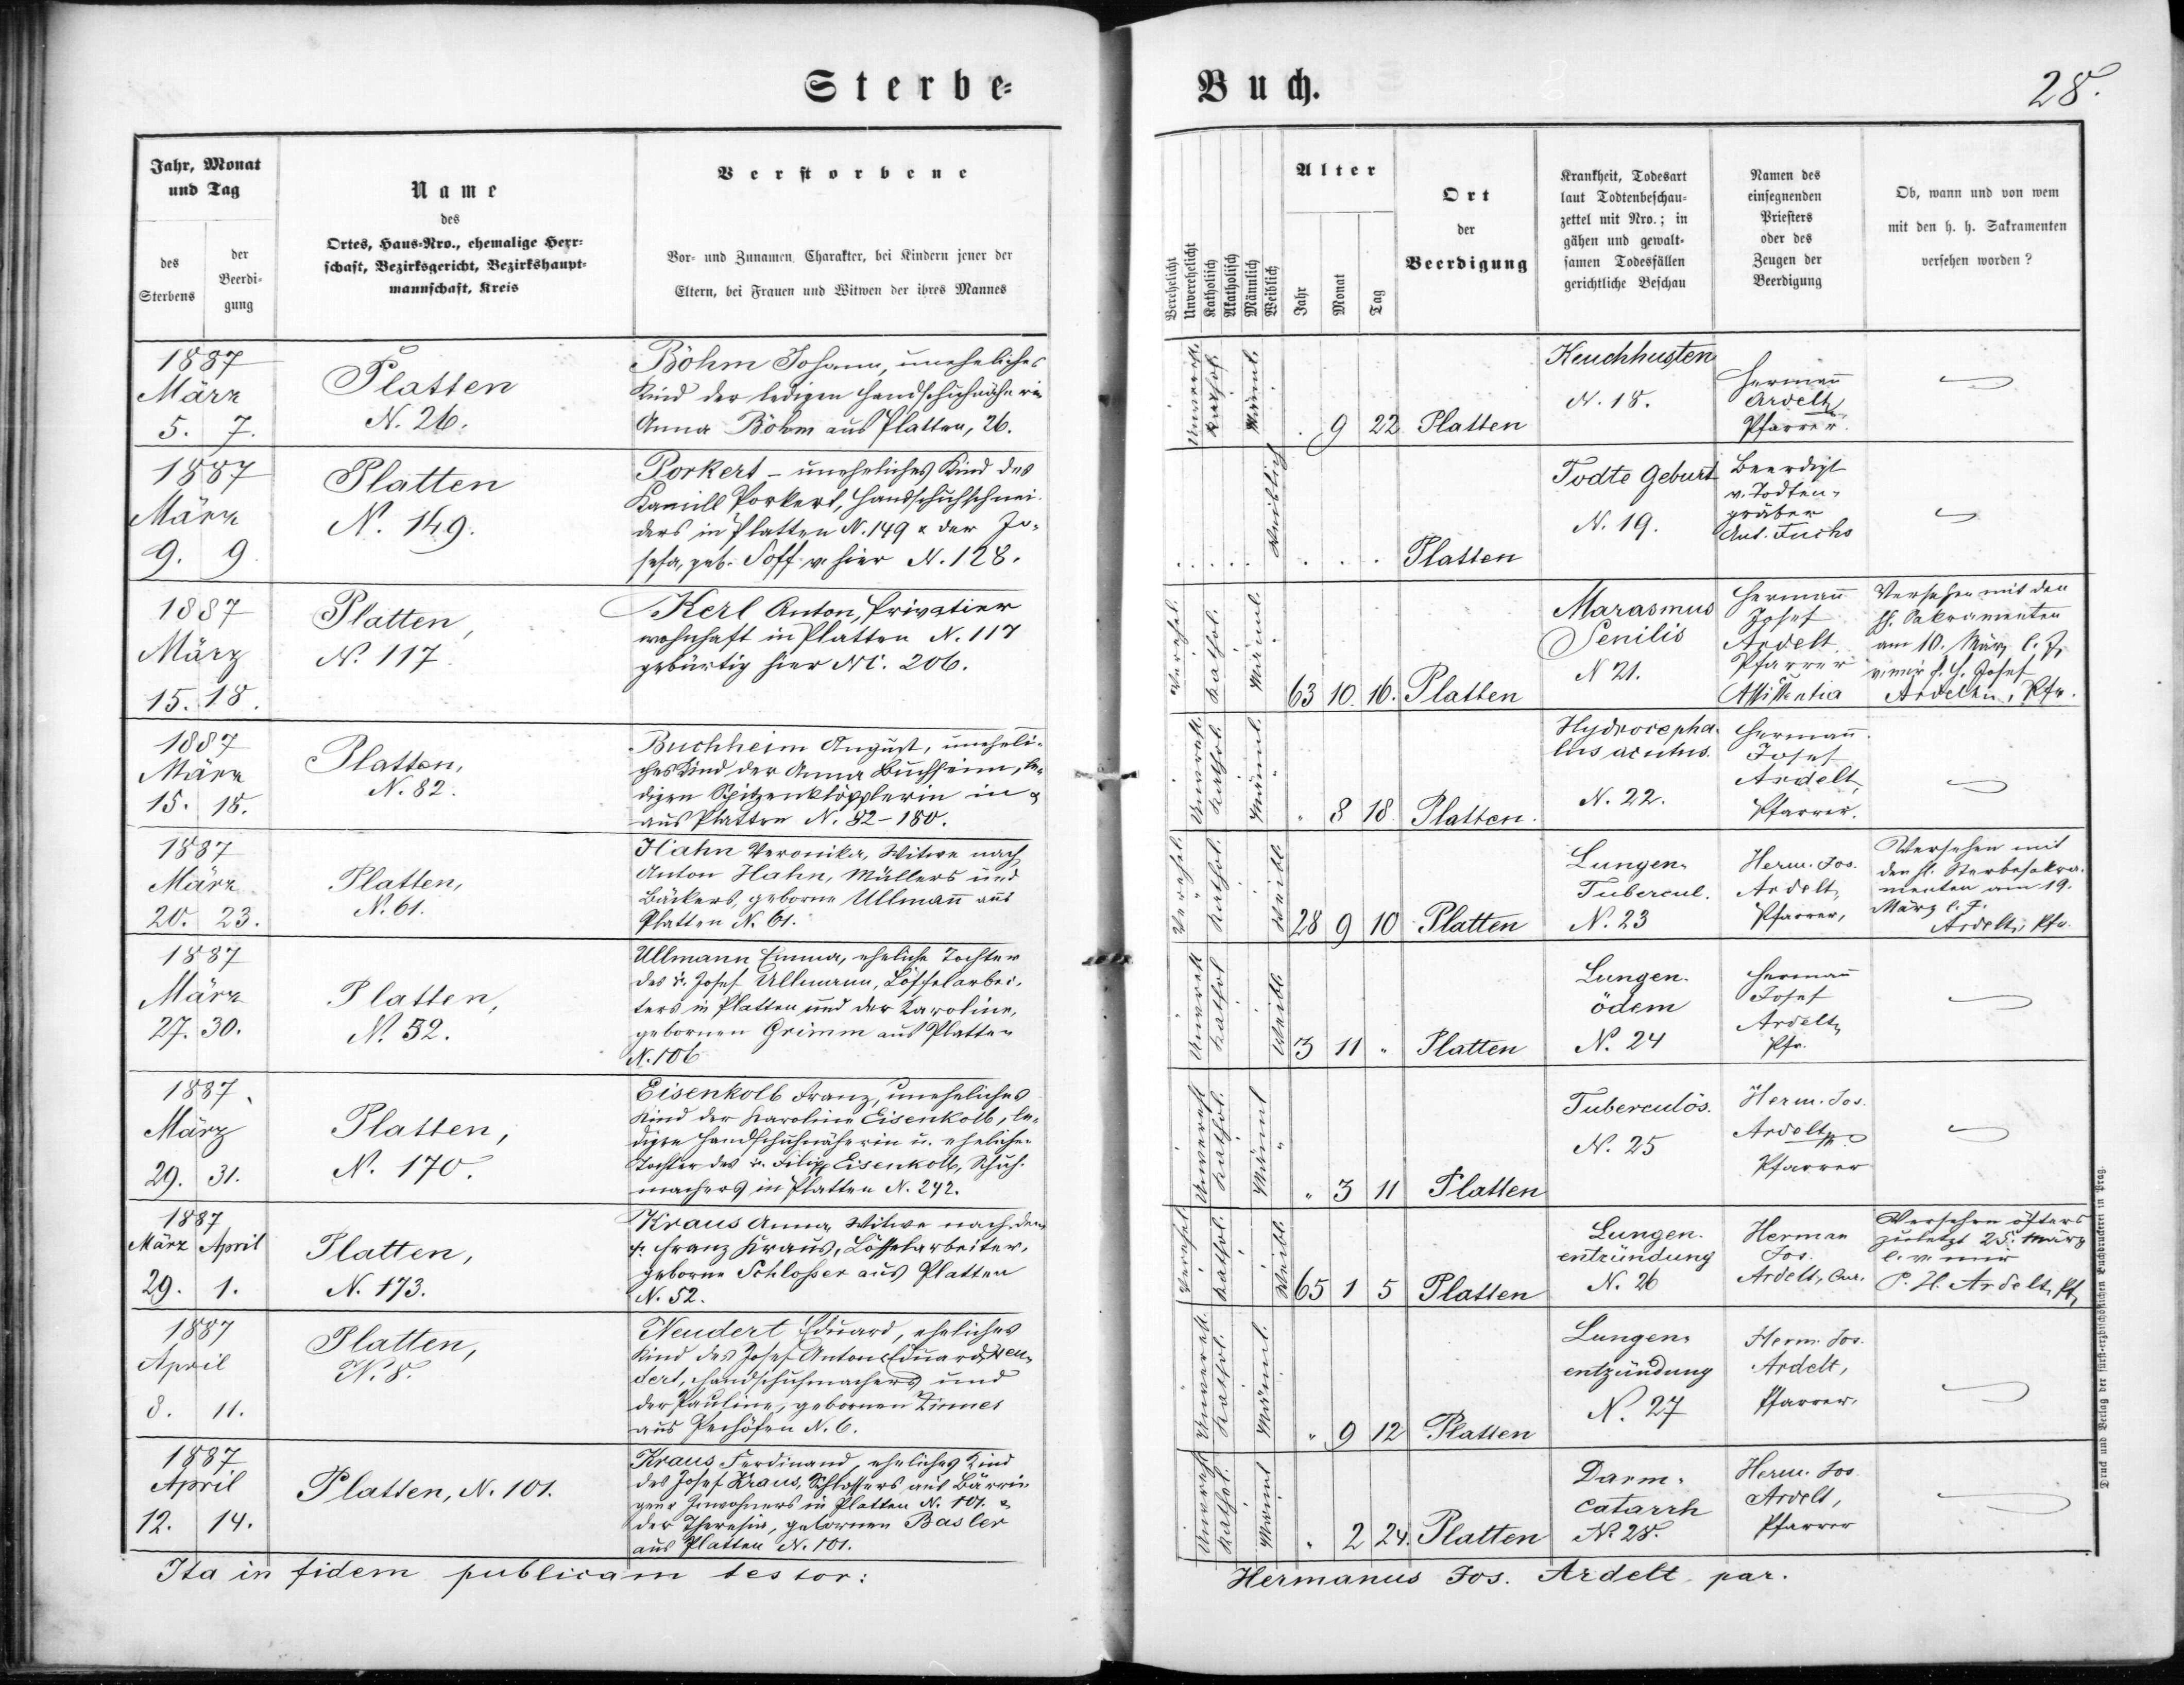 Sterbe-
Buch.
28.
Jahr, Monat
und Tag
des
Sterbens
der
Beerdi-
gung
Name
des
Ortes, Haus-Nro., ehemalige Herr-
schaft, Bezirksgericht, Bezirkshaupt-
mannschaft, Kreis
Verstorbene
Vor- und Zunamen, Charakter, bei Kindern jener der
Eltern, bei Frauen und Witwen der ihres Mannes
Verehelicht
Unverehelicht
Katholisch
Akatholisch
Männlich
Weiblich
Alter
Jahr
Monat
Tag
Ort
der
Beerdigung
Krankheit, Todesart
laut Todtenbeschau-
zettel mit Nro.; in
gähen und gewalt-
samen Todesfällen
gerichtliche Beschau
Namen des
einsegnenden
Priesters
oder des
Zeugen der
Beerdigung
Ob, wann und von wem
mit den h. h. Sakramenten
versehen worden?
1887
März
5. 7.
Platten
N. 26.
Böhm Johann, uneheliches
Kind der ledigen Handschuhnäherin
Anna Böhm aus Platten, 26.
Unvereh.
Kathol.
Männl.
. 9 22 Platten
Keuchhusten
N. 18.
Hermann
Ardelt,
Pfarrer.
1887
März
9. 9
Platten
N. 149.
Porkert – uneheliches Kind des
Kamill Porkert, Handschuhschnei-
ders in Platten N. 149 & der Jo-
sefa, geb. Poff v. hier N. 128.
Weiblich
. . . Platten
Todte Geburt
N. 19.
Beerdigt
v. Todten-
gräber
Ant. Fuchs
1887
März
15. 18.
Platten,
N. 117.
Kerl Anton, Privatier
wohnhaft in Platten N. 117
gebürtig hier N. 206.
Verehel.
Kathol.
Männl.
63 10. 16. Platten
Marasmus
Senilis
N 21.
Hermann
Josef
Ardelt
Pfarrer
Assistentia
Versehen mit den
hl. Sakramenten
am 10. März l. J.
v. mir H. Josef
Ardelt, Pfr.
1887
März
15. 18.
Platten,
N. 82.
Buchheim August, uneheli-
ches Kind der Anna Buchheim, le-
digen Spitzenklöpplerin in &
aus Platten N. 82–180.
Unvereh.
Kathol.
Männl.
" 8 18 Platten.
Hydrocepha-
lus acutus.
N. 22.
Hermann
Josef
Ardelt,
Pfarrer.
1887
März
20. 23.
Platten,
N. 61.
Hahn Veronika, Witwe nach
Anton Hahn, Müllers und
Bäckers, geborne Ullmann aus
Platten N. 61.
Verehel.
Kathol.
Weibl.
28 9 10 Platten
Lungen-
Tubercul.
N. 23
Herm. Jos.
Ardelt,
Pfarrer,
Versehen mit
den hl. Sterbesakra-
menten am 19.
März l. J.
Ardelt, Pfr.
1887
März
27. 30.
Platten,
N. 52.
Ullmann Emma, eheliche Tochter
des Josef Ullmann, Löffelarbei-
ters in Platten und der Karoline,
gebornen Grimm aus Platten
N. 106
Unvereh
Kathol
Weibl.
3 11 " Platten
Lungen-
ödem
N. 24
Hermann
Josef
Ardelt,
Pfr.
1887.
März
29. 31.
Platten,
N. 170.
Eisenkolb Franz, uneheliches
Kind der Karoline Eisenkolb, le-
digen Handschuhnäherin u. ehelichen
Tochter des Filipp Eisenkolb, Schuh-
machers in Platten N. 242.
Unvereh
Kathol.
Männl
" 3 11 Platten
Tuberculös.
N. 25
Herm. Jos.
Ardelt,
Pfarrer
1887
März April
29. 1.
Platten,
N. 173.
Kraus Anna, Witwe nach dem
Franz Kraus, Löffelarbeiter,
geborne Schlosser aus Platten
N. 52.
Verehel.
Kathol.
Weibl.
65 1 5 Platten
Lungen-
entzündung
N. 26
Herman
Jos.
Ardelt, Cur.
Versehen öfters
zuletzt 25. März
l. v. mir
P. H. Ardelt, Pf.
1887
April
8. 11.
Platten,
N. 8.
Neudert Eduard, eheliches
Kind des Josef Anton Eduard Neu-
dert, Handschuhmachers und
der Pauline, gebornen Zinner
aus Pechöfen N. 6.
Unvereh.
Kathol.
Männl.
" 9 12 Platten
Lungen-
entzündung
N. 27
Herm. Jos.
Ardelt,
Pfarrer,
1887
April
12. 14.
Platten, N. 101.
Kraus Ferdinand, eheliches Kind
des Josef Kraus, Schlossers aus Bärrin-
gen & Inwohners in Platten N. 101. &
der Theresia, gebornen Basler
aus Platten N. 101.
Unvereh
Kathol.
Männl
" 2 24. Platten
Darm-
catarrh
N. 28.
Herm. Jos.
Ardelt,
Pfarrer
Ita in fidem publicam testor:
Hermanus Jos. Ardelt par.
Druck und Verlag der fürst-erzbischöflichen Buchdruckerei in Prag.